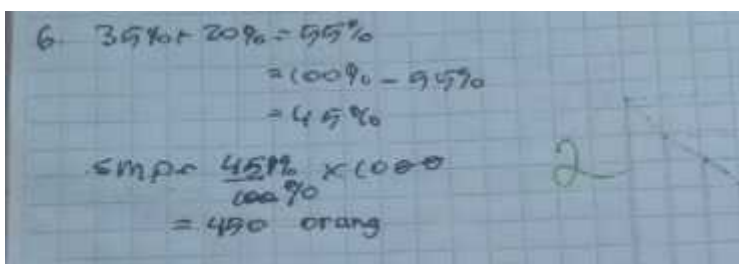 6. 35% + 20% = 55%
= 100% - 55%
= 45%
SMP = 45% × 1000
100%
= 450 orang
2